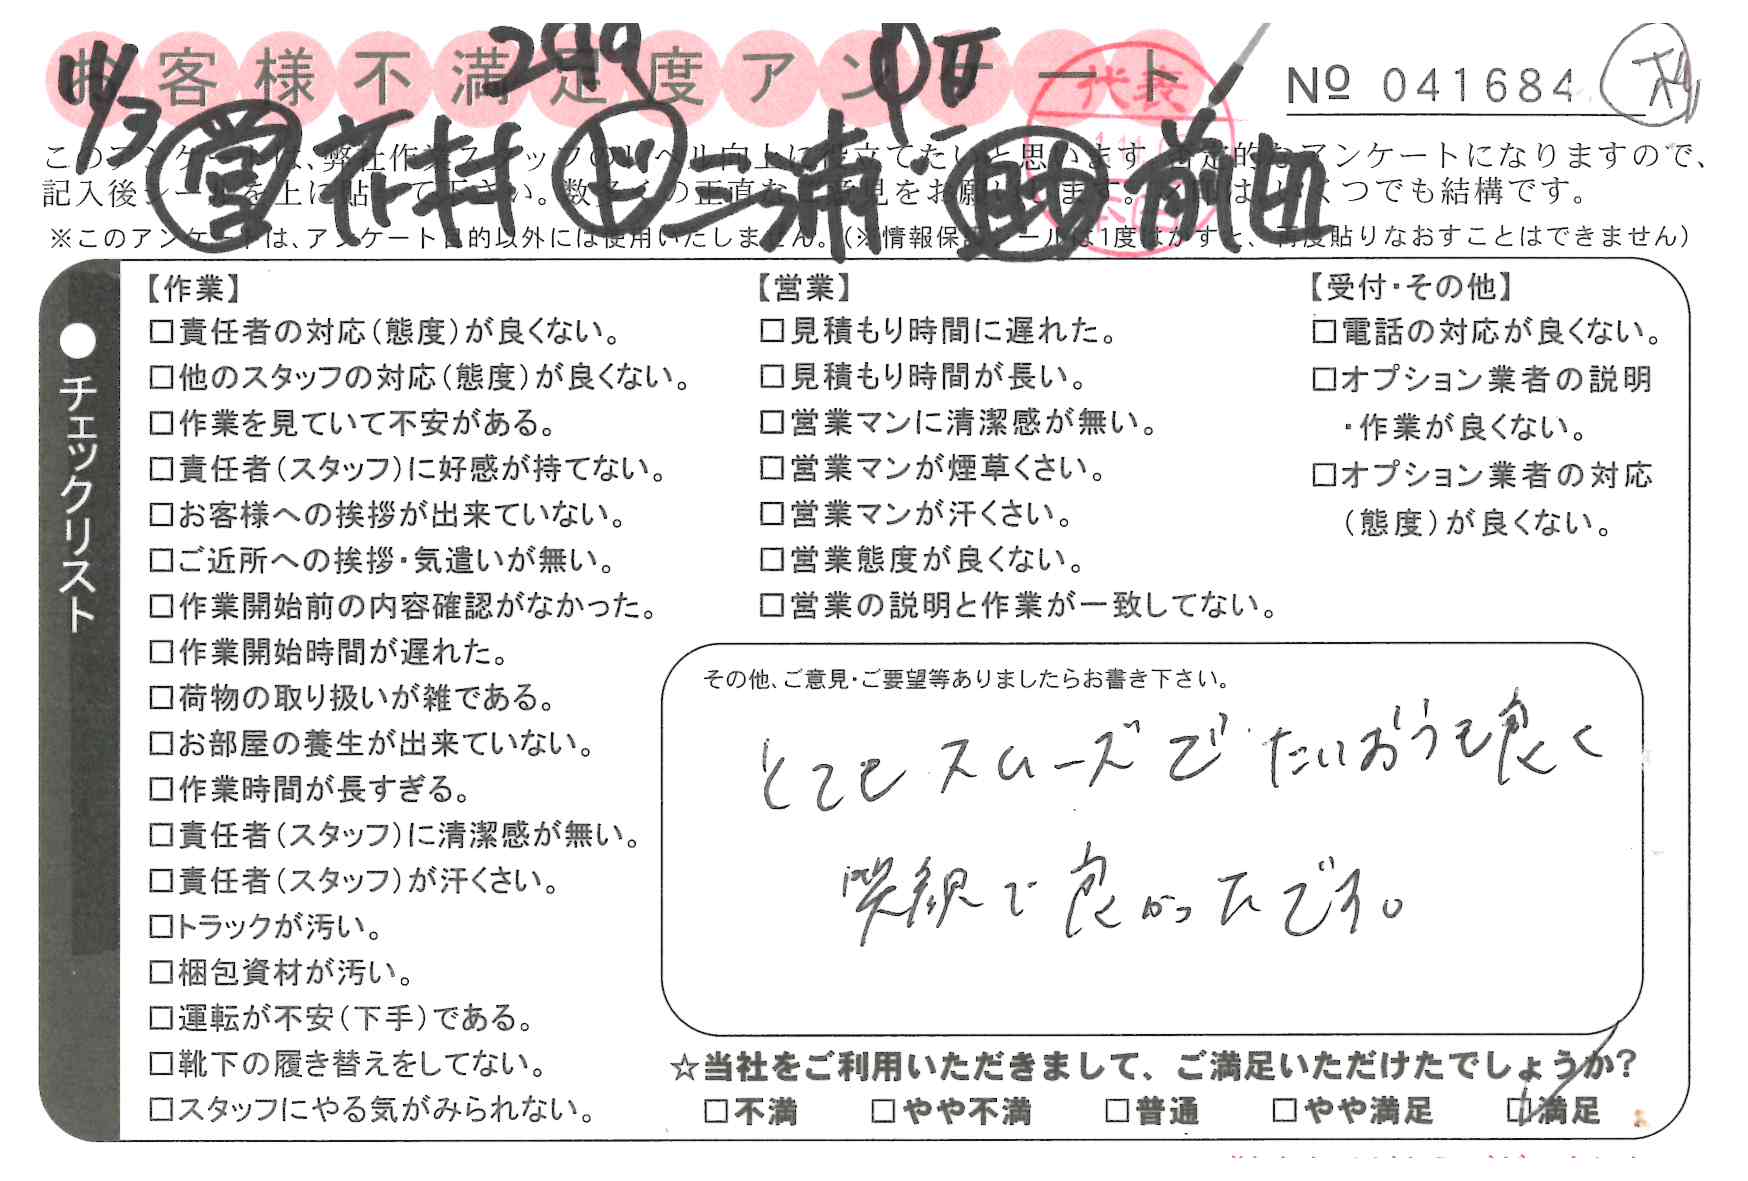 お客様不満足度アンケート
No 041684
11/3 299
営 花村 ド 三浦 助 前田
このアンケートは、弊社作業スタッフのレベル向上に役立てたいと思います。否定的なアンケートになりますので、
記入後シールを上に貼って下さい。数多くの正直なご意見をお願いします。
いくつでも結構です。
※このアンケートは、アンケート目的以外には使用いたしません。(※情報保護シールは1度はがすと、再度貼りなおすことはできません)
代表
●チェックリスト
【作業】
□責任者の対応(態度)が良くない。
□他のスタッフの対応(態度)が良くない。
□作業を見ていて不安がある。
□責任者(スタッフ)に好感が持てない。
□お客様への挨拶が出来ていない。
□ご近所への挨拶・気遣いが無い。
□作業開始前の内容確認がなかった。
□作業開始時間が遅れた。
□荷物の取り扱いが雑である。
□お部屋の養生が出来ていない。
□作業時間が長すぎる。
□責任者(スタッフ)に清潔感が無い。
□責任者(スタッフ)が汗くさい。
□トラックが汚い。
□梱包資材が汚い。
□運転が不安(下手)である。
□靴下の履き替えをしてない。
□スタッフにやる気がみられない。
【営業】
□見積もり時間に遅れた。
□見積もり時間が長い。
□営業マンに清潔感が無い。
□営業マンが煙草くさい。
□営業マンが汗くさい。
□営業態度が良くない。
□営業の説明と作業が一致してない。
【受付・その他】
□電話の対応が良くない。
□オプション業者の説明
・作業が良くない。
□オプション業者の対応
(態度)が良くない。
その他、ご意見・ご要望等ありましたらお書き下さい。
とてもスムーズで たいおうも良く
で良かったです。
☆当社をご利用いただきまして、ご満足いただけたでしょうか?
□不満 □やや不満 □普通 □やや満足 □満足